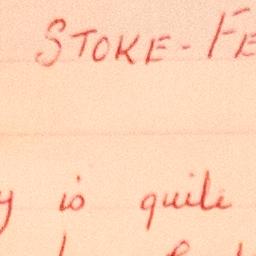 STOKE-FE
y is quite